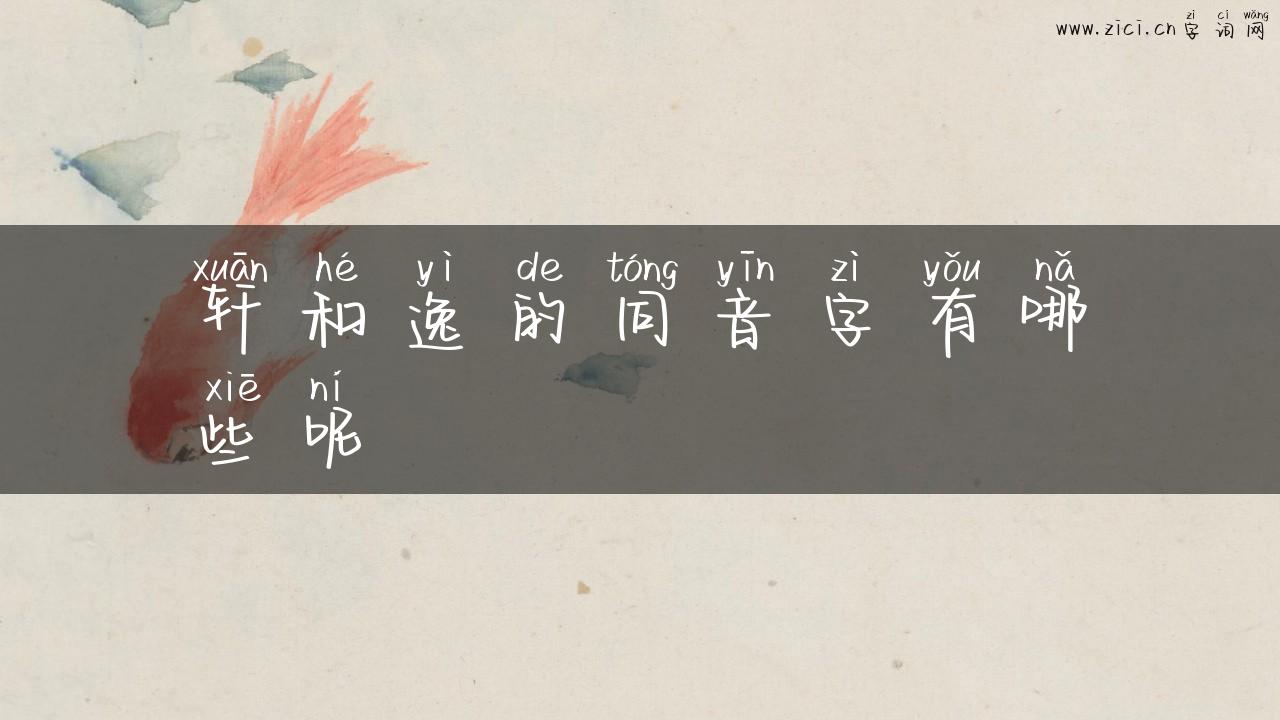 zì cí wǎng
www.zici.cn 字 词 网
xuān hé yì de tóng yīn zì yǒu nǎ
轩 和 逸 的 同 音 字 有 哪
xiē ní
些 呢